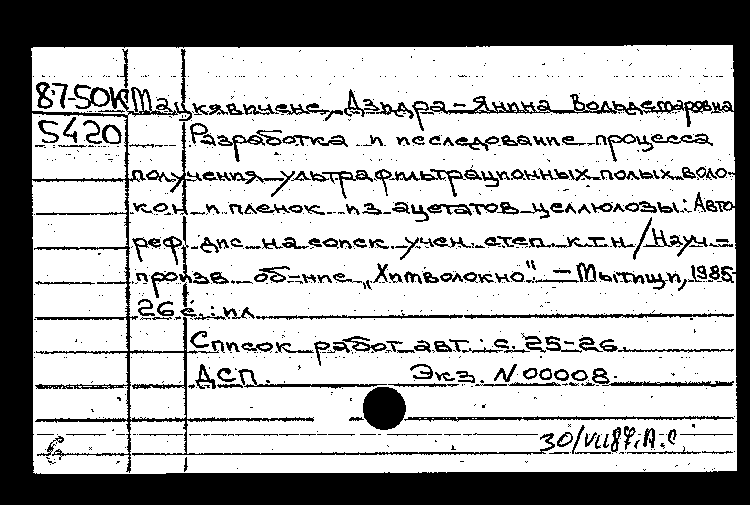 87-50К Мацкявичене, Дзидра-Янина Вольдемаровна
5420 Разработка и исследование процесса
получения ультрафильтрационных полых воло-
кон и пленок из ацетатов целлюлозы: Авто
реф. дис. на соиск. учен. степ. к.т.н / Науч.-
произв. об-ние „Химволокно". - Мытищи, 1985-
26 с.: ил
Список работ авт.: с. 25-26.
ДСП. Экз. N 00008.
6 30/VII87. А.С.